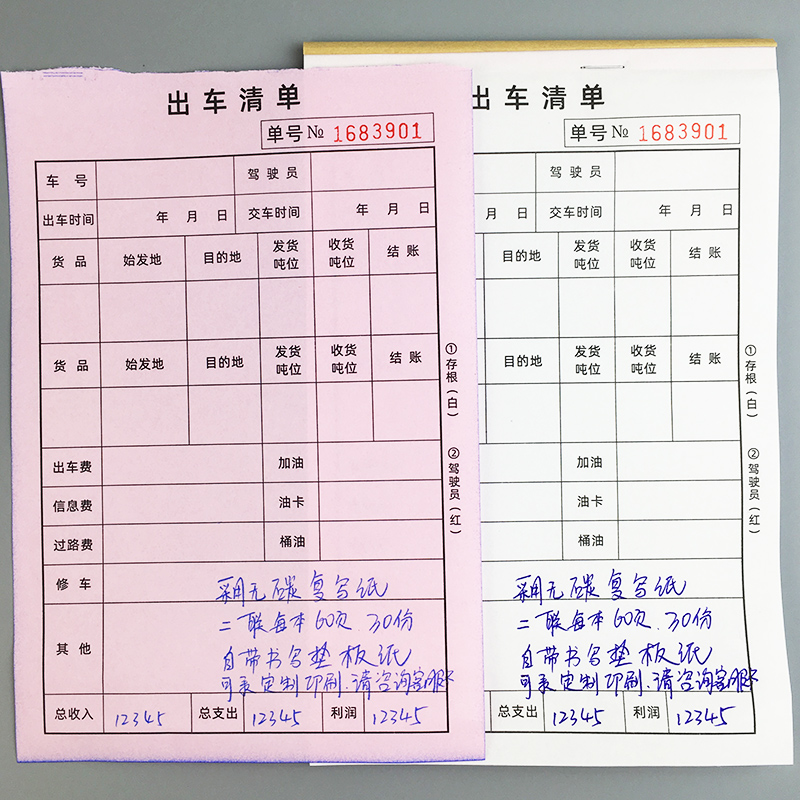 出车清单
单号 № 1683901
车号 驾驶员
出车时间 年 月 日 交车时间 年 月 日
货品 始发地 目的地 发货吨位 收货吨位 结账
货品 始发地 目的地 发货吨位 收货吨位 结账
出车费 加油
信息费 油卡
过路费 桶油
修车
其他
采用无碳复写纸
二联每本60页.30份
自带书写垫板纸
可来定制印刷.请咨询客服
总收入 12345 总支出 12345 利润 12345
①存根(白)
②驾驶员(红)
出车清单
单号 № 1683901
驾驶员
月 日 交车时间 年 月 日
目的地 发货吨位 收货吨位 结账
目的地 发货吨位 收货吨位 结账
加油
油卡
桶油
采用无碳复写纸
二联每本60页.30份
自带书写垫板纸
可来定制印刷.请咨询客服
总支出 12345 利润 12345
①存根(白)
②驾驶员(红)